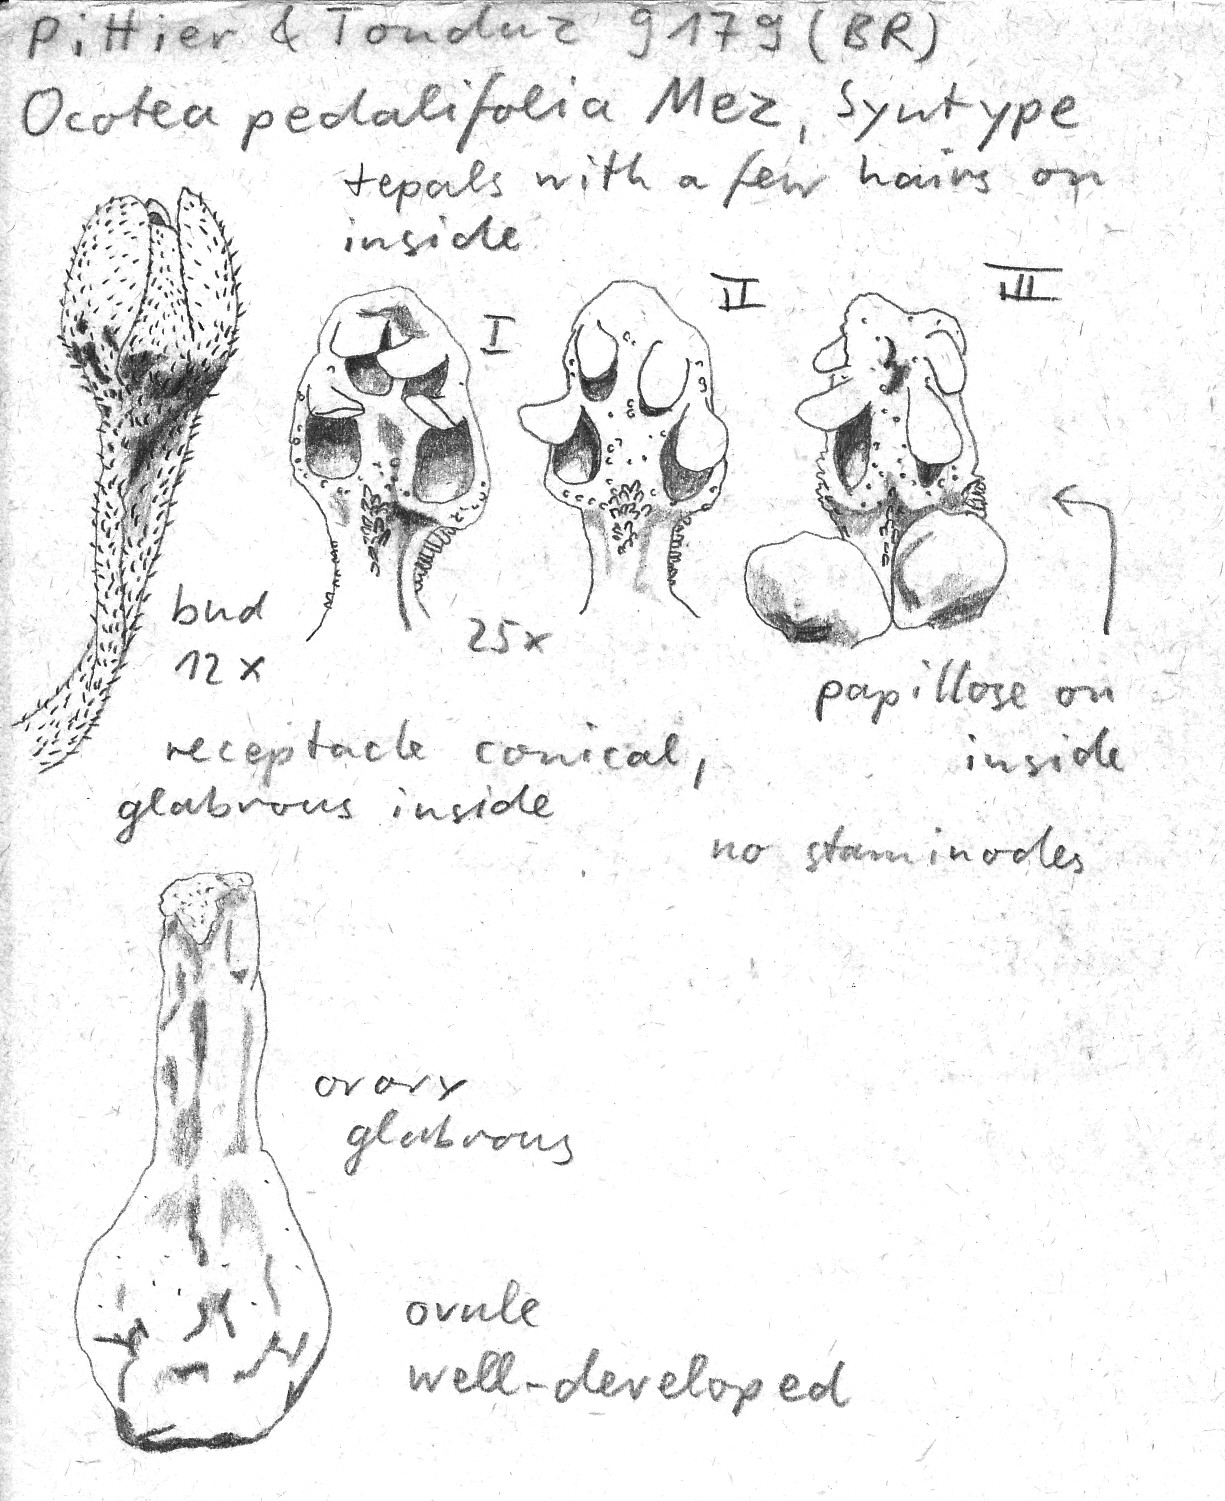 Pittier & Tonduz 9179 (BR)
Ocotea pedalifolia Mez, Syntype
tepals with a few hairs on
inside
I
II
III
bud
12x
25x
papillose on
inside
receptacle conical,
glabrous inside
no staminodes
ovary
glabrous
ovule
well-developed